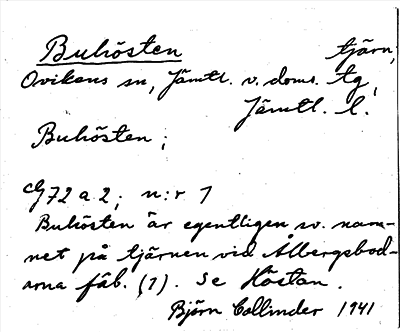 Buhösten tjärn,
Ovikens sn, Jämtl. v. doms. tg,
Jämtl. l.
Buhösten;
G72 a 2; n:r 1
Buhösten är egentligen sv. nam-
net på tjärnen vid Ålbergsbod-
arna fäb. (1). Se Höstan.
Björn Collinder 1941